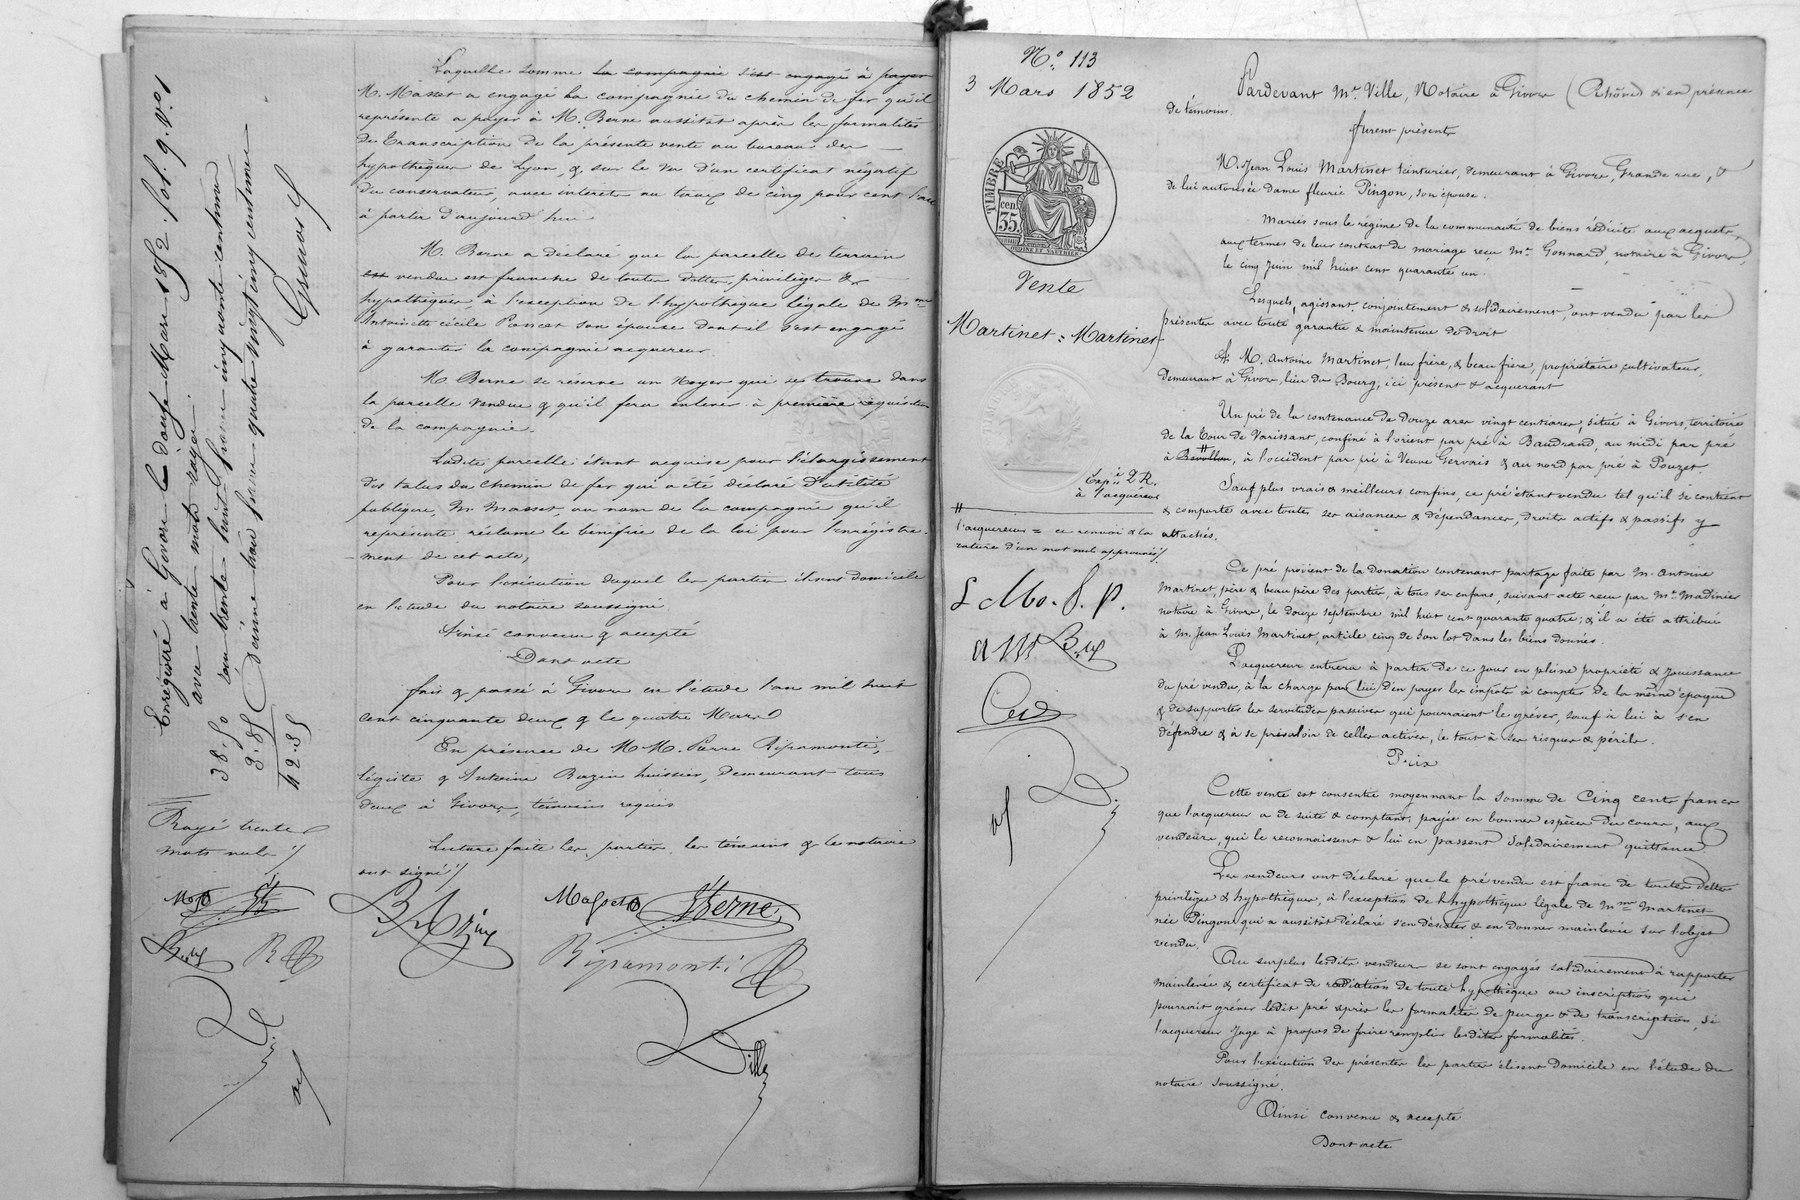 Laquelle somme la compagnie s'est engagé à payer
M. Masset a engagé la compagnie du chemin de fer qu'il
représente a payer à M. Berne aussitôt après les formalités
de transcription de la présente vente au bureau des
hypothèques de Lyon, & sur le vu d'un certificat négatif
du conservateur, avec intérêt au taux de cinq pour cent l'an
à partir d'aujourd'hui
M. Berne a déclaré que la parcelle de terrain
est vendue est franche de toutes dettes, privilèges &
hypothèques, à l'exception de l'hypothèque légale de Mme
Antoinette Cécile Poncet son épouse dont il s'est engagé
à garantir la compagnie acquereur.
M. Berne se réserve un Noyer qui se trouve dans
la parcelle vendue & qu'il fera enlever à première réquisition
de la compagnie.
Ladite parcelle étant acquise pour l'élargissement
des talus du chemin de fer qui a été déclaré d'utilité
publique, M. Masset, au nom de la compagnie qu'il
représente, réclame le bénéfice de la loi pour l'enregistre-
ment de cet acte,
Pour l'exécution duquel les parties élisent domicile
en l'étude du notaire soussigné
Ainsi convenu & accepté
Dont acte
fait & passé à Givors en l'étude l'an mil huit
cent cinquante deux & le quatre Mars
En présence de M.M. Pierre Ripamonti,
légiste & Antoine Bazin huissier, demeurant tous
deux à Givors, témoins requis
Lecture faite les parties, les témoins & le notaire
ont signé
Enregistré à Givors le douze Mars 1852. fol. 9. Vo. 1
avec trente mots rayés.
Reçu trente huit francs cinquante centimes
Décime trois francs quatre vingt cinq centimes
38.50
3.85
42.35
Rayé trente
mots nuls
Bazin
Masset
Berne
Ripamonti
Ville
No. 113
3 Mars 1852
TIMBRE
35 cen.
Vente
Martinet = Martinet
Exp. 2 R.
à l'acquéreur
l'acquereur = ce renvoi & la
rature d'un mot nul approuvés
L Mo. f. P.
a M Bzin
Pardevant Me. Ville, Notaire à Givors (Rhône) & en présence
de témoins.
furent présents
M. Jean Louis Martinet teinturier, demeurant à Givors, Grande rue, &
de lui autorisée dame fleurie Pingon, son épouse.
Mariés sous le régime de la communauté de biens réduite aux acquets,
aux termes de leur contrat de mariage reçu Me. Gonnard, notaire à Givors,
le cinq Juin mil huit cent quarante un.
Lesquels, agissant conjointement & solidairement, ont vendu par les
présentes avec toute garantie & maintenue de droit
A M. Antoine Martinet, leur frère, & beau frère, propriétaire cultivateur,
demeurant à Givors, lieu du Bourg, ici présent & acquerant
Un pré de la contenance de Douze ares vingt centiares, situé à Givors, territoire
de la Tour de Varissant, confiné à l'orient par pré à Baudrand, au midi par pré
à Bevollon, à l'occident par pré à Veuve Gervais & au nord par pré à Pouzet
Sauf plus vrais & meilleurs confins, ce pré étant vendu tel qu'il se contient
& comporte avec toutes ses aisances & dépendances, droits actifs & passifs y
attachés.
Ce pré provient de la Donation contenant partage faite par M. Antoine
Martinet, père & beau père des parties, à tous ses enfans, suivant acte reçu par Me. Madinier
notaire à Givors, le douze septembre mil huit cent quarante quatre; & il a été attribué
à M. Jean Louis Martinet, article cinq de son lot dans les biens donnés.
L'acquereur entrera à partir de ce jour en pleine propriété & jouissance
du pré vendu, à la charge par lui d'en payer les impôts à compter de la même époque
& de supporter les servitudes passives qui pourraient le gréver, sauf à lui à s'en
défendre & à se prévaloir de celles actives, le tout à ses risques & périls.
Prix
Cette vente est consentie moyennant la somme de Cinq cents francs
que l'acquereur a de suite & comptant, payée en bonnes espèces du cours, aux
vendeurs, qui le reconnaissent & lui en passent solidairement quittance.
Les vendeurs ont déclaré que le pré vendu est franc de toutes dettes
privilèges & hypothèques, à l'exception de l'hypothèque légale de Mme Martinet
née Pingon, qui a aussitôt déclaré s'en désister & en donner mainlevée sur l'objet
vendu.
Au surplus lesdits vendeurs se sont engagés solidairement à rapporter
mainlevée & certificat de radiation de toute hypothèque ou inscription qui
pourrait gréver ledit pré après les formalités de purge & de transcription, si
l'acquereur juge à propos de faire remplir lesdites formalités.
Pour l'exécution des présentes les parties élisent domicile en l'étude du
notaire soussigné.
Ainsi convenu & accepté
Dont acte